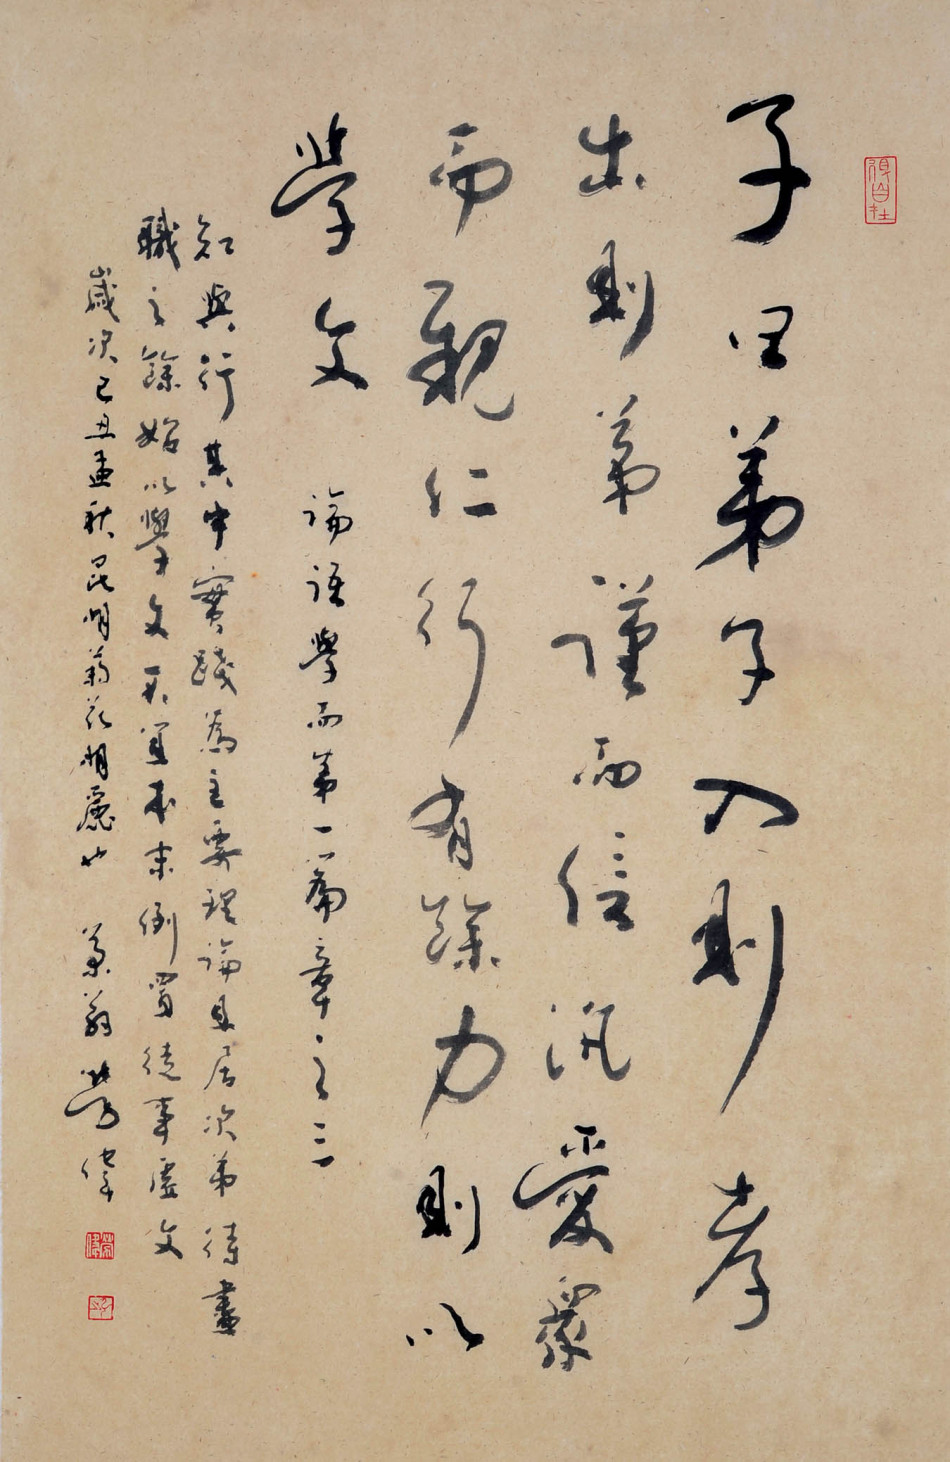 子曰弟子入則孝
出則弟謹而信汎愛衆
而親仁行有餘力則以
學文
論語學而第一篇章之三
知與行其中實踐為主要理論且居次弟待盡
職之餘始以學文不宜本末倒置徒事虛文
歲次己丑孟秋昆明菊花明麗也
翁勞偉